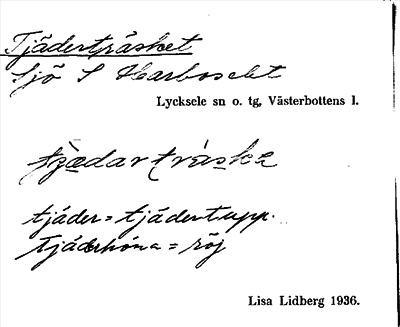 Tjäderträsket
Sjö S Harboselet
Lycksele sn o. tg, Västerbottens l.
tjædarträska
tjäder = tjädertupp.
tjäderhöna = röj
Lisa Lidberg 1936.